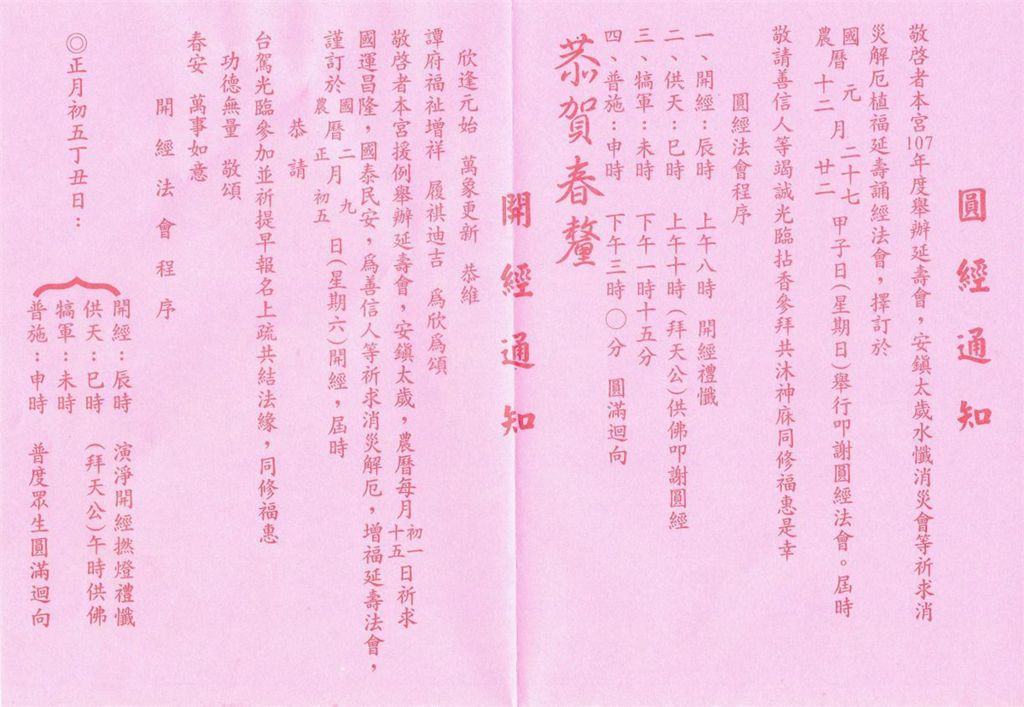 圓經通知
敬啓者本宮107年度舉辦延壽會，安鎮太歲水懺消災會等祈求消
災解厄植福延壽誦經法會，擇訂於
國曆元月二十七
農曆十二月廿二甲子日(星期日)舉行叩謝圓經法會。屆時
敬請善信人等竭誠光臨拈香參拜共沐神麻同修福惠是幸
圓經法會程序
一、開經：辰時　上午八時　開經禮懺
二、供天：巳時　上午十時(拜天公)供佛叩謝圓經
三、犒軍：未時　下午一時十五分
四、普施：申時　下午三時〇分　圓滿迴向
恭賀春釐
開經通知
欣逢元始　萬象更新　恭維
譚府福祉增祥　履祺迪吉　為欣為頌
敬啓者本宮援例舉辦延壽會，安鎮太歲，農曆每月初一十五日祈求
國運昌隆，國泰民安，為善信人等祈求消災解厄，增福延壽法會，
謹訂於國曆二月九
農曆正月初五日(星期六)開經，屆時
恭請
台駕光臨參加並祈提早報名上疏共結法緣，同修福惠
功德無量　敬頌
春安　萬事如意
開經法會程序
◎正月初五丁丑日：
開經：辰時　演淨開經撚燈禮懺
供天：巳時　(拜天公)午時供佛
犒軍：未時
普施：申時　普度眾生圓滿迴向